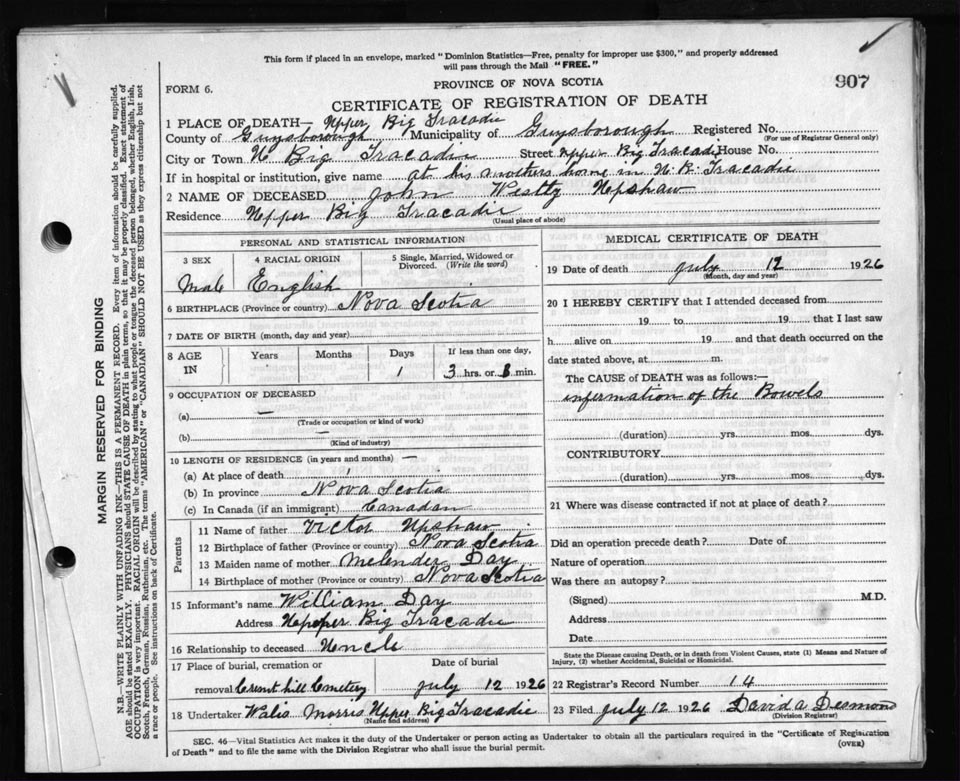 This form if placed in an envelope, marked "Dominion Statistics—Free, penalty for improper use $300," and properly addressed
will pass through the Mail "FREE."
FORM 6.
PROVINCE OF NOVA SCOTIA
907
CERTIFICATE OF REGISTRATION OF DEATH
1 PLACE OF DEATH— Upper Big Tracadie
County of Guysborough Municipality of Guysborough Registered No.
(For use of Registrar General only)
City or Town U Big Tracadie Street Upper Big Tracadi House No.
If in hospital or institution, give name at his mothers home in U. B. Tracadie
2 NAME OF DECEASED John Westly Upshaw
Residence Upper Big Tracadie
(Usual place of abode)
PERSONAL AND STATISTICAL INFORMATION
3 SEX 4 RACIAL ORIGIN 5 Single, Married, Widowed or
Divorced. (Write the word)
Male English
6 BIRTHPLACE (Province or country) Nova Scotia
7 DATE OF BIRTH (month, day and year)
8 AGE IN Years Months Days If less than one day,
1 3 hrs. or 3 min.
9 OCCUPATION OF DECEASED
(a) —
(Trade or occupation or kind of work)
(b) —
(Kind of industry)
10 LENGTH OF RESIDENCE (in years and months) —
(a) At place of death
(b) In province Nova Scotia
(c) In Canada (if an immigrant) Canadan
Parents
11 Name of father Victor Upshaw
12 Birthplace of father (Province or country) Nova Scotia
13 Maiden name of mother Melender Day
14 Birthplace of mother (Province or country) Nova Scotia
15 Informant's name William Day
Address Upper Big Tracadie
16 Relationship to deceased Uncle
17 Place of burial, cremation or Date of burial
removal hill Cemetery July 12 1926
18 Undertaker Walis Morris Upper Big Tracadie
(Name and address)
MEDICAL CERTIFICATE OF DEATH
19 Date of death July 12 1926
(Month, day and year)
20 I HEREBY CERTIFY that I attended deceased from
19 to 19 that I last saw
h alive on 19 and that death occurred on the
date stated above, at m.
The CAUSE of DEATH was as follows:—
infermation of the Bowels
(duration) yrs. mos. dys.
CONTRIBUTORY
(duration) yrs. mos. dys.
21 Where was disease contracted if not at place of death?
Did an operation precede death? Date of
Nature of operation
Was there an autopsy?
(Signed) M.D.
Address
Date
State the Disease causing Death, or in death from Violent Causes, state (1) Means and Nature of
Injury, (2) whether Accidental, Suicidal or Homicidal.
22 Registrar's Record Number 14
23 Filed July 12 1926 David A Desmond
(Division Registrar)
SEC. 46—Vital Statistics Act makes it the duty of the Undertaker or person acting as Undertaker to obtain all the particulars required in the "Certificate of Registration
of Death" and to file the same with the Division Registrar who shall issue the burial permit.
(OVER)
MARGIN RESERVED FOR BINDING
N.B.—WRITE PLAINLY WITH UNFADING INK—THIS IS A PERMANENT RECORD. Every item of information should be carefully supplied.
AGE should be stated EXACTLY. PHYSICIANS should STATE CAUSE OF DEATH in plain terms, so that it may be properly classified. Exact statement of
OCCUPATION is very important. RACIAL ORIGIN will be described by stating to what people or tongue the deceased person belonged, whether English, Irish,
Scotch, French, German, Russian, Ruthenian, etc. The terms "AMERICAN" or "CANADIAN" SHOULD NOT BE USED as they express citizenship but not
a race or people. See instructions on back of Certificate.